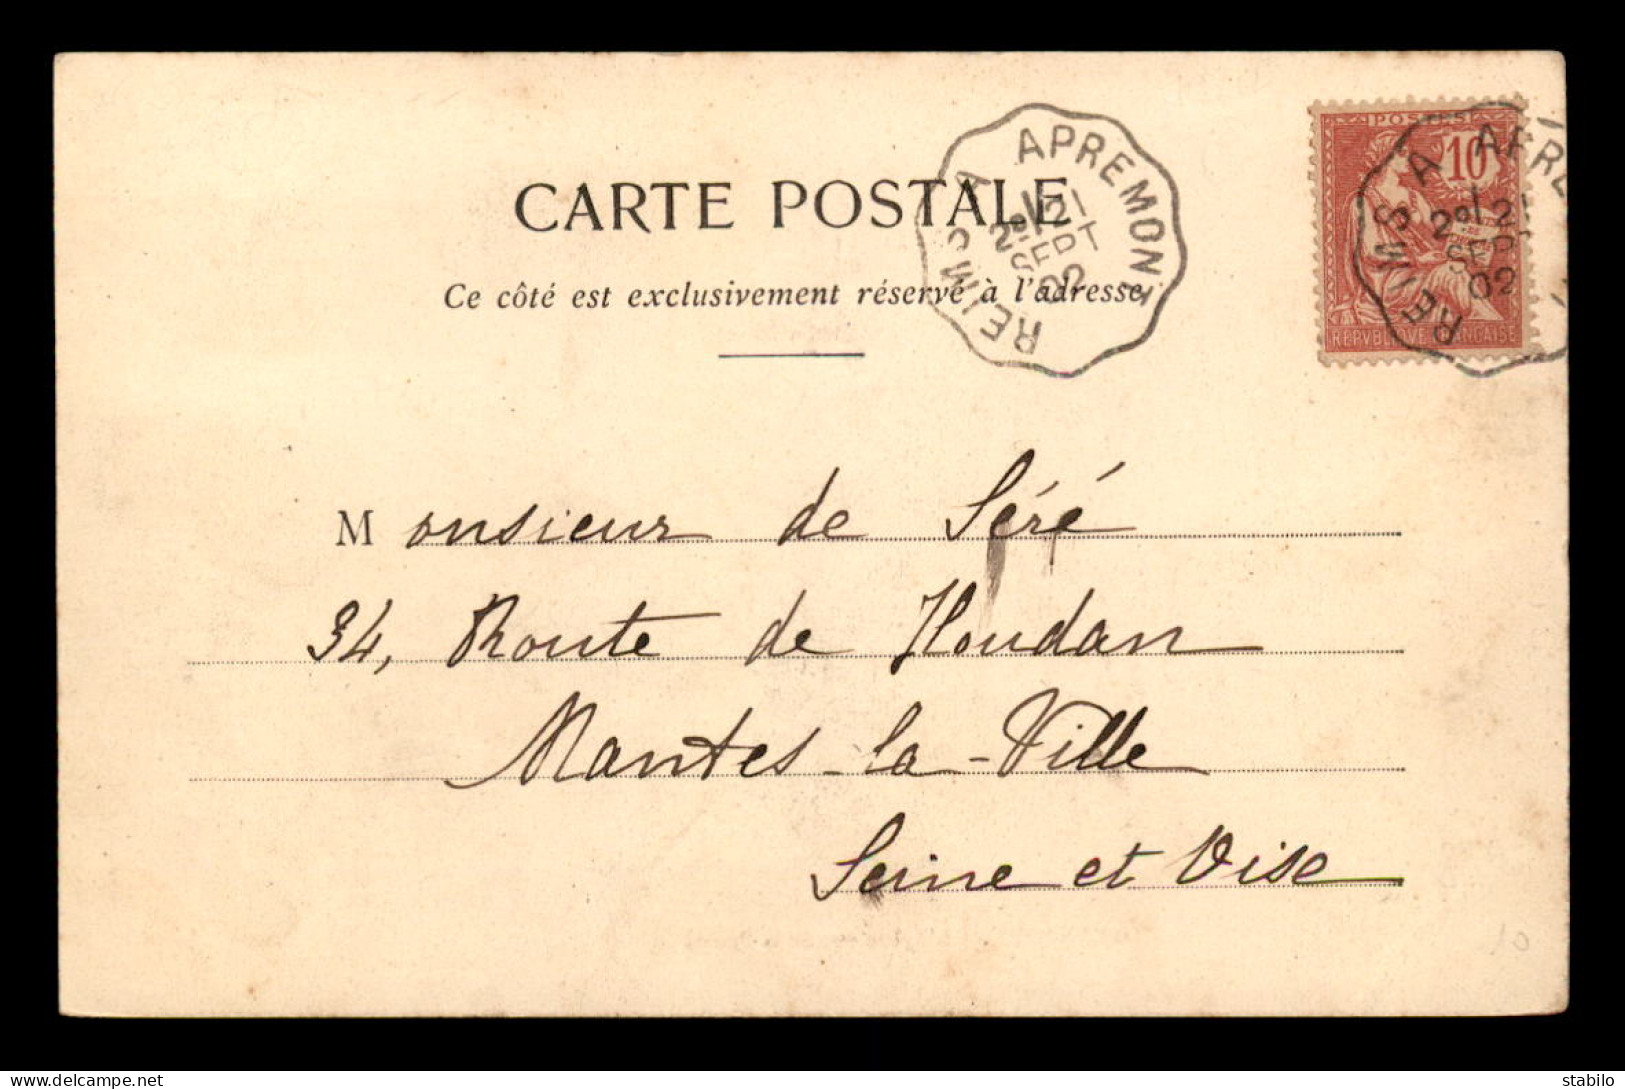 CARTE POSTALE
Ce côté est exclusivement réservé à l'adresse
REIMS A APREMONT
2º/21
SEPT
02
POSTES
10
REPVBLIQVE FRANÇAISE
REIMS A APRE
2º/21
SEPT
02
Monsieur de Séré
34, Route de Houdan
Mantes-la-Ville
Seine et Oise
10
stabilo
delcampe.net